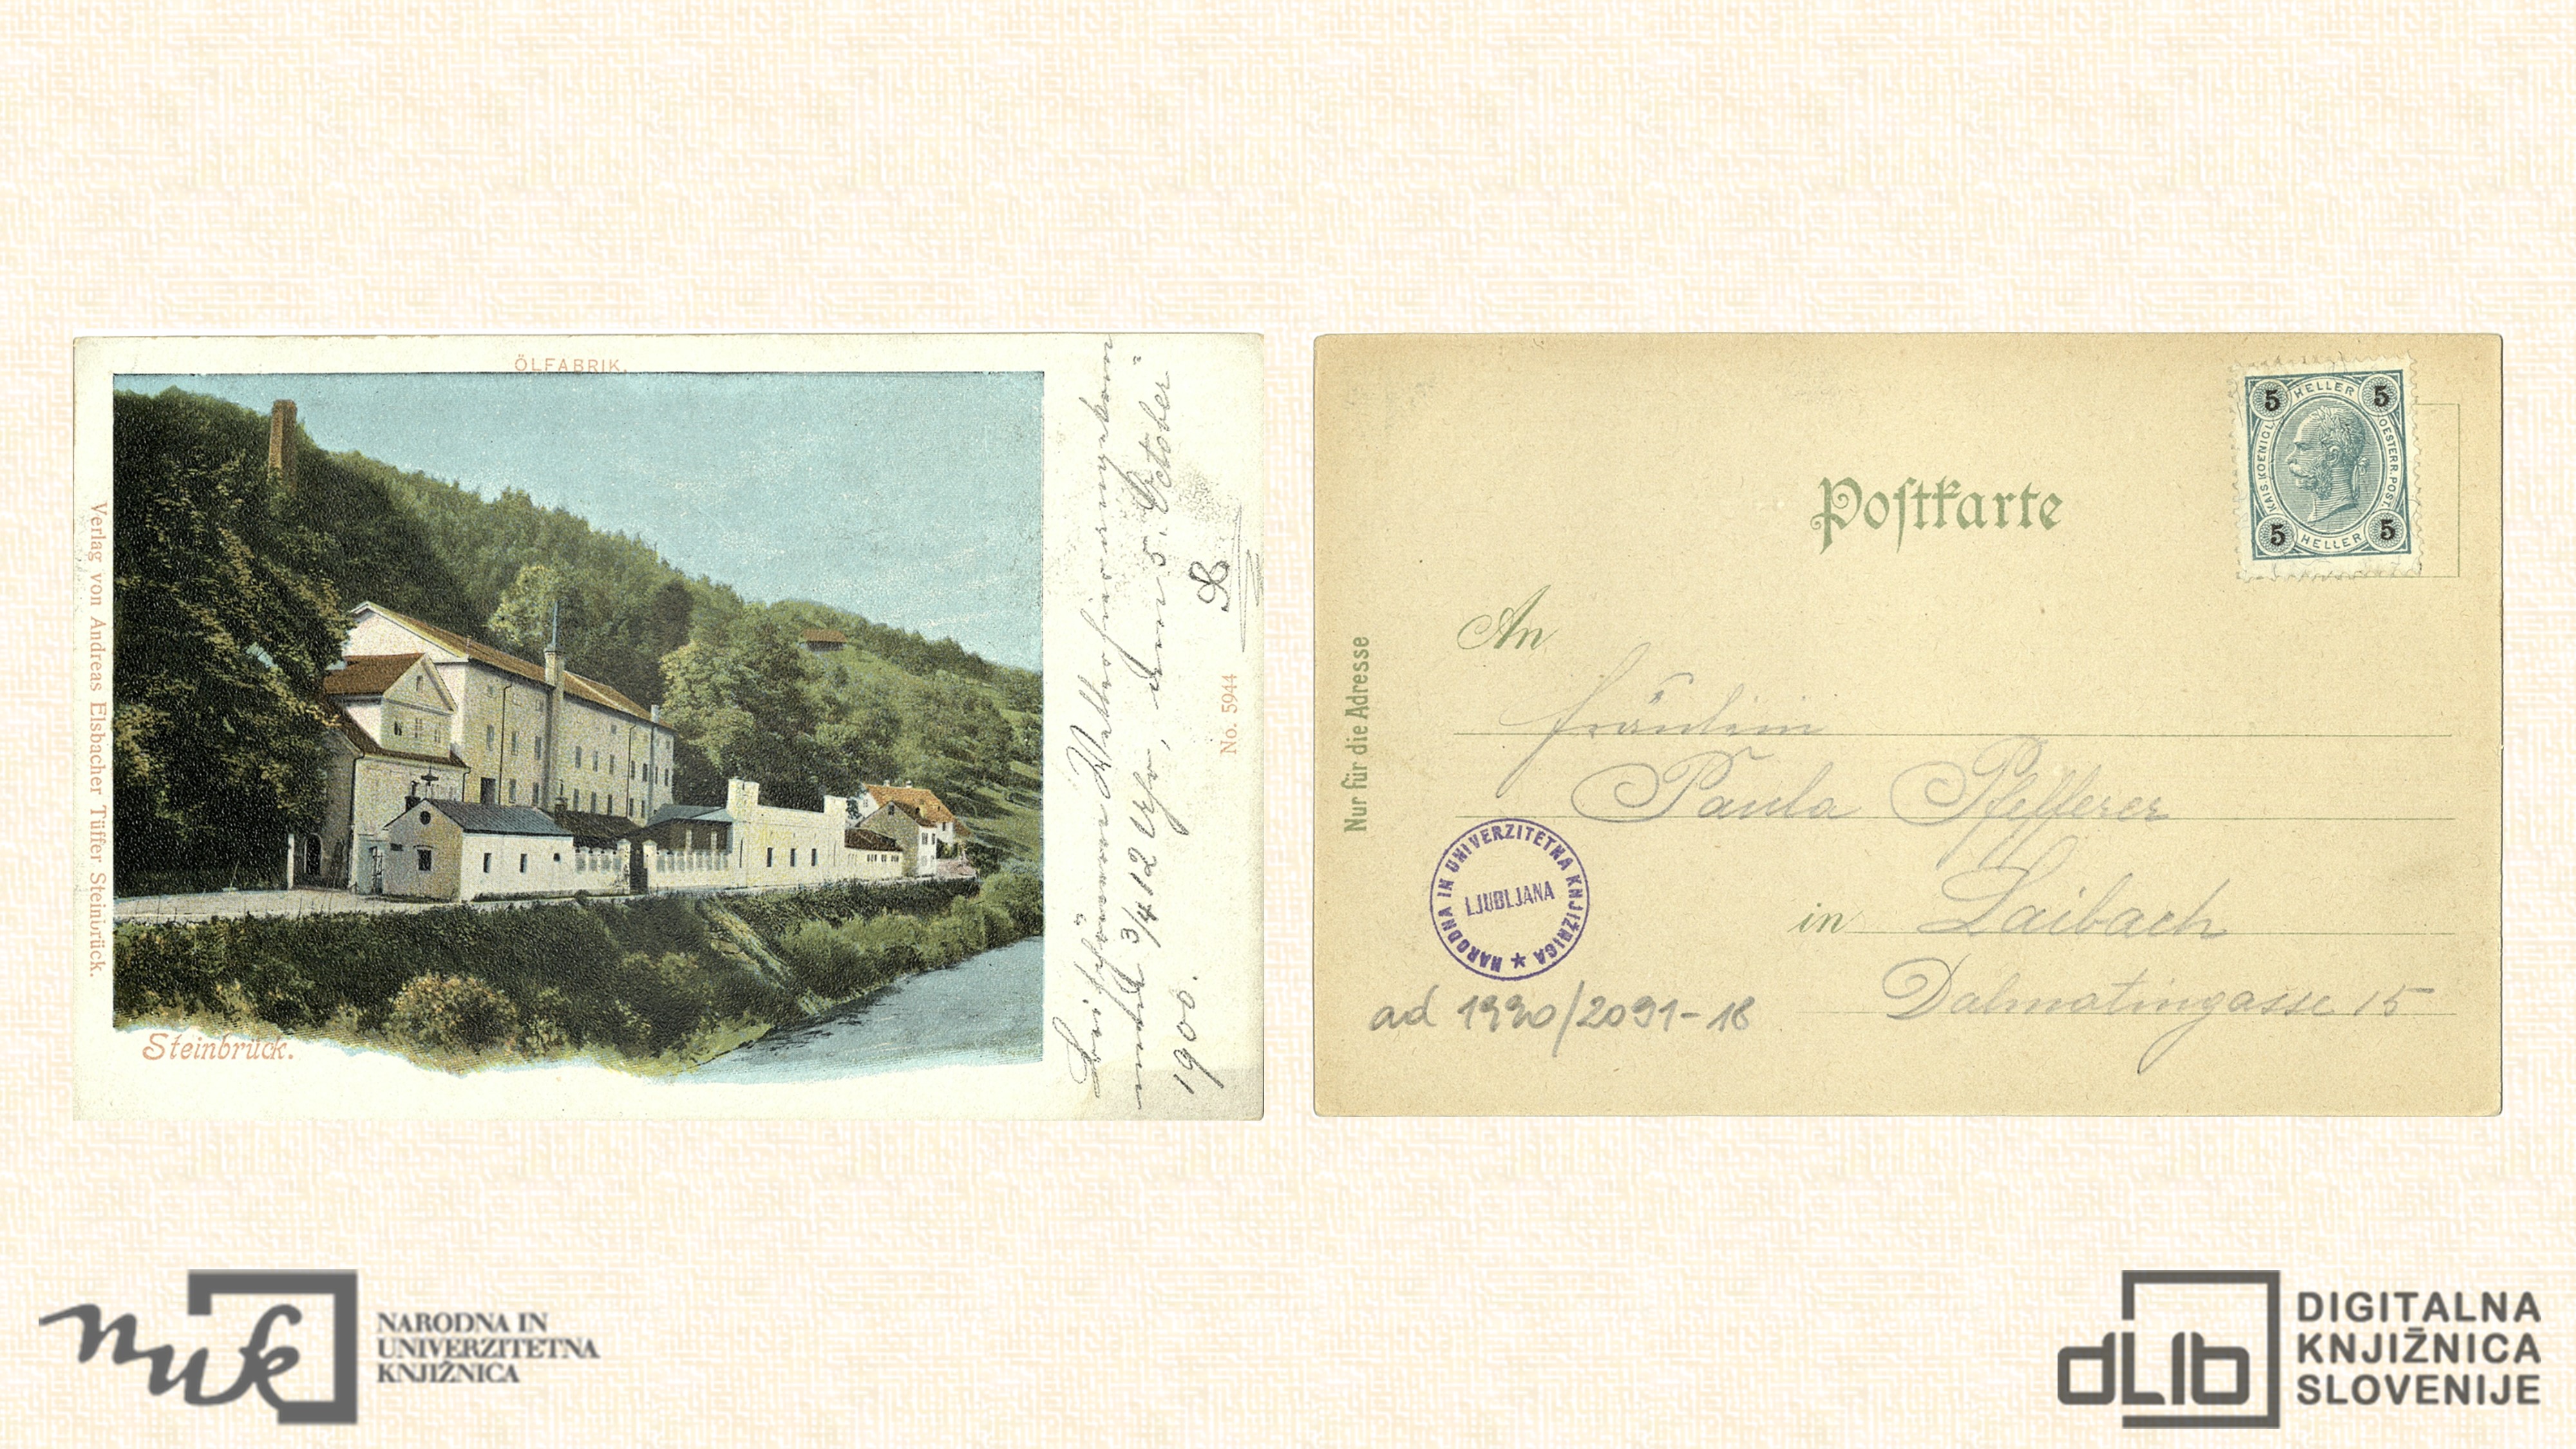 ÖLFABRIK.
Verlag von Andreas Elsbacher Tüffer Steinbrück.
Steinbrück.
Bei schönem Wetter hier angekommen
um 3/4 12 Uhr, am 5. October
1900.
No. 5944
Postkarte
5 HELLER 5
KAIS. KOENIGL. OESTERR. POST.
5 HELLER 5
Nur für die Adresse
An
Fräulein
Paula Pfefferer
in Laibach
Dalmatingasse 15
NARODNA IN UNIVERZITETNA KNJIŽNICA ★
LJUBLJANA
ad 1990/2091-18
nuk
NARODNA IN
UNIVERZITETNA
KNJIŽNICA
dLib
DIGITALNA
KNJIŽNICA
SLOVENIJE